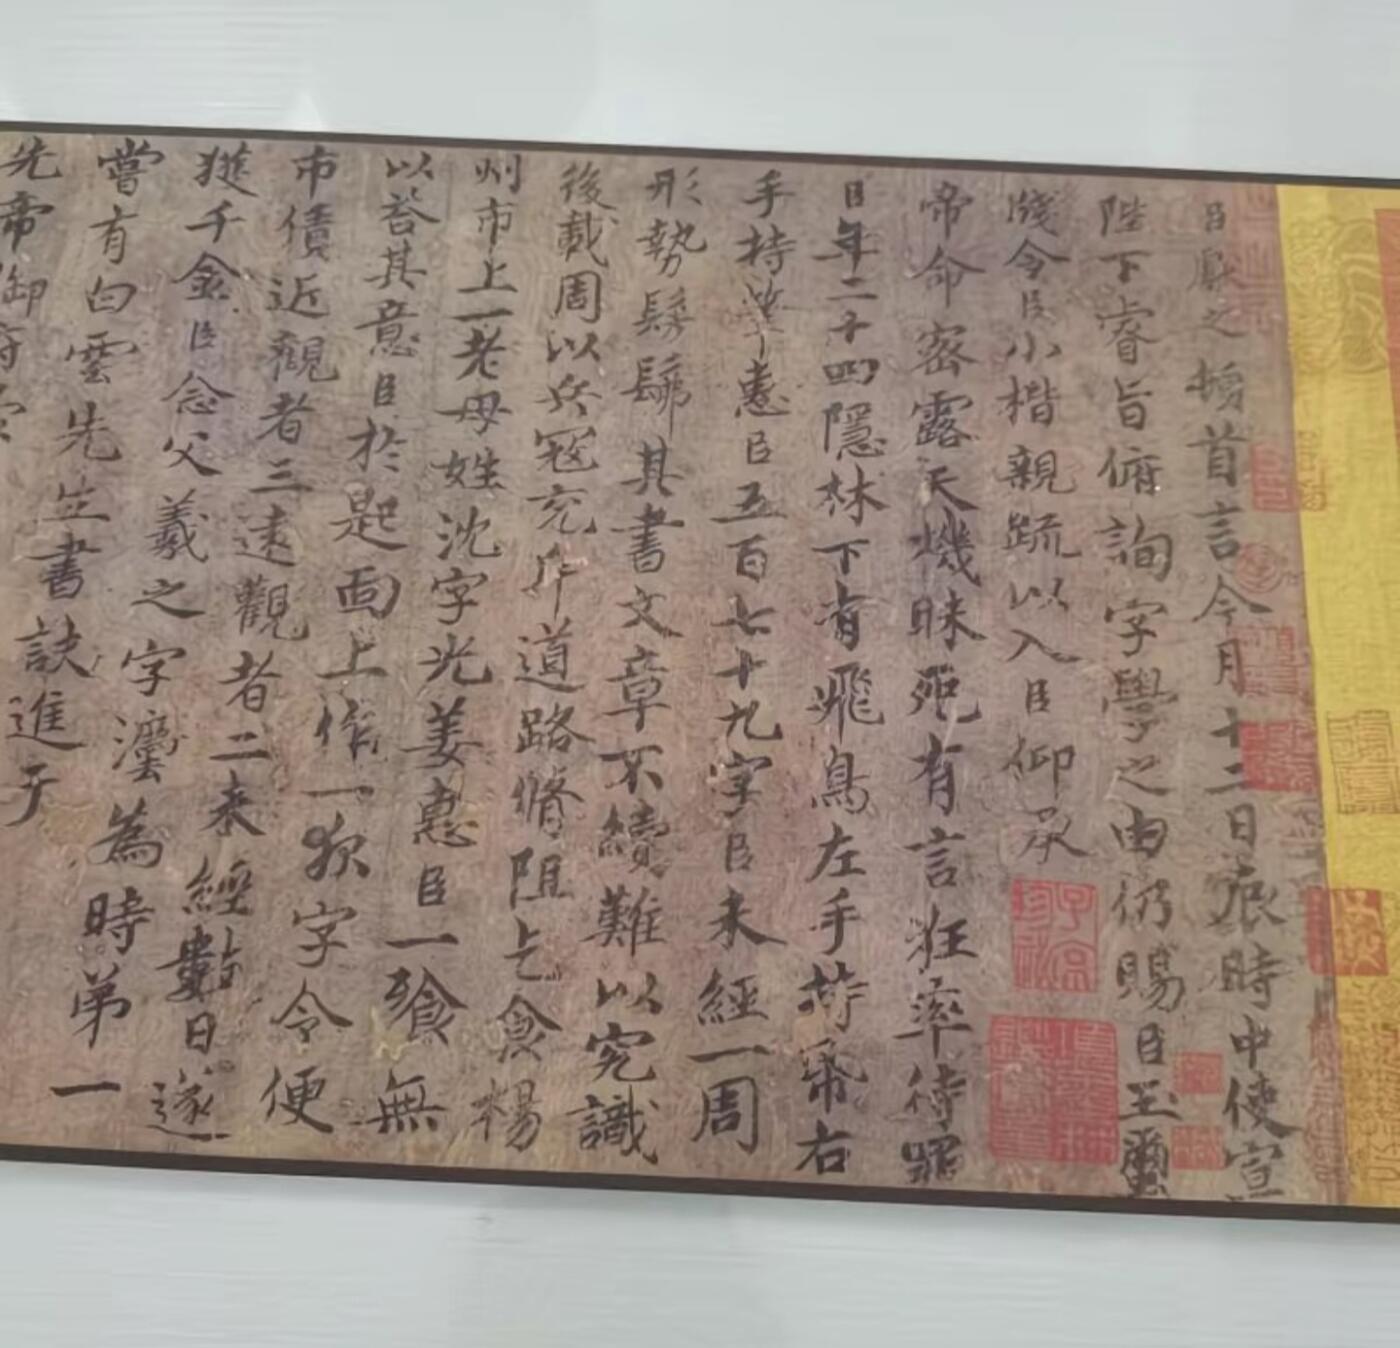 臣獻之頓首言今月十二日辰時中使宣
陛下睿旨俯詢字學之由仍賜臣玉璽
牋令臣小楷親疏以入臣仰承
帝命密露天機昧死有言狂率待罪
臣年二十四隱林下有飛鳥左手持紙右
手持筆惠臣五百七十九字臣未經一周
形勢髣髴其書文章不續難以究識
後載周以兵寇充斥道路脩阻乞食楊
州市上一老母姓沈字光姜惠臣一飡無
以荅其意臣於匙面上作一夜字令便
市債近觀者三遠觀者二未經數日遂
獲千金臣念父羲之字灋為時弟一
嘗有白雲先生書訣進于
先帝御府